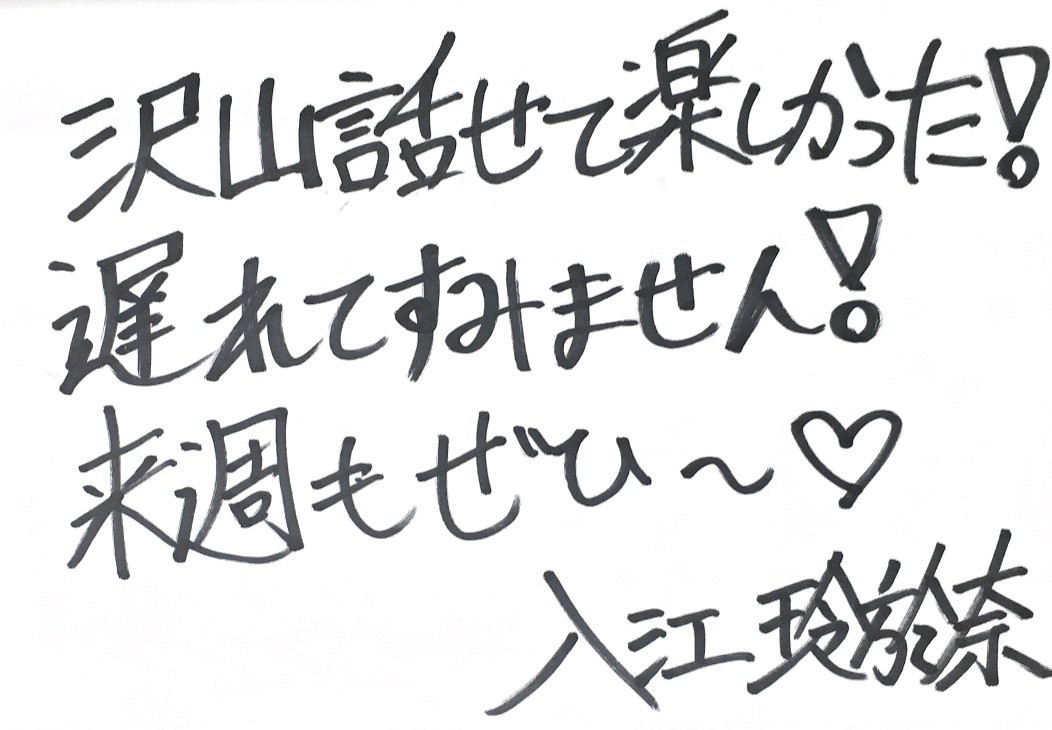 沢山話せて楽しかった!
遅れてすみません!
来週もぜひ〜♡
入江玲於奈